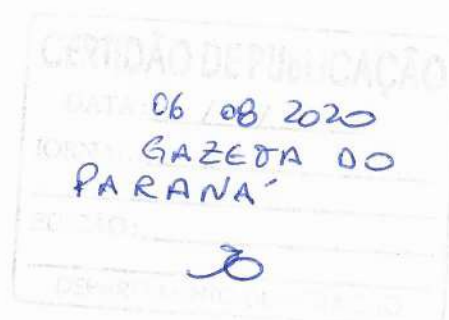 CERTIDÃO DE PUBLICAÇÃO
DATA: 06 / 08 / 2020
JORNAL: GAZETA DO
PARANÁ
EDIÇÃO: